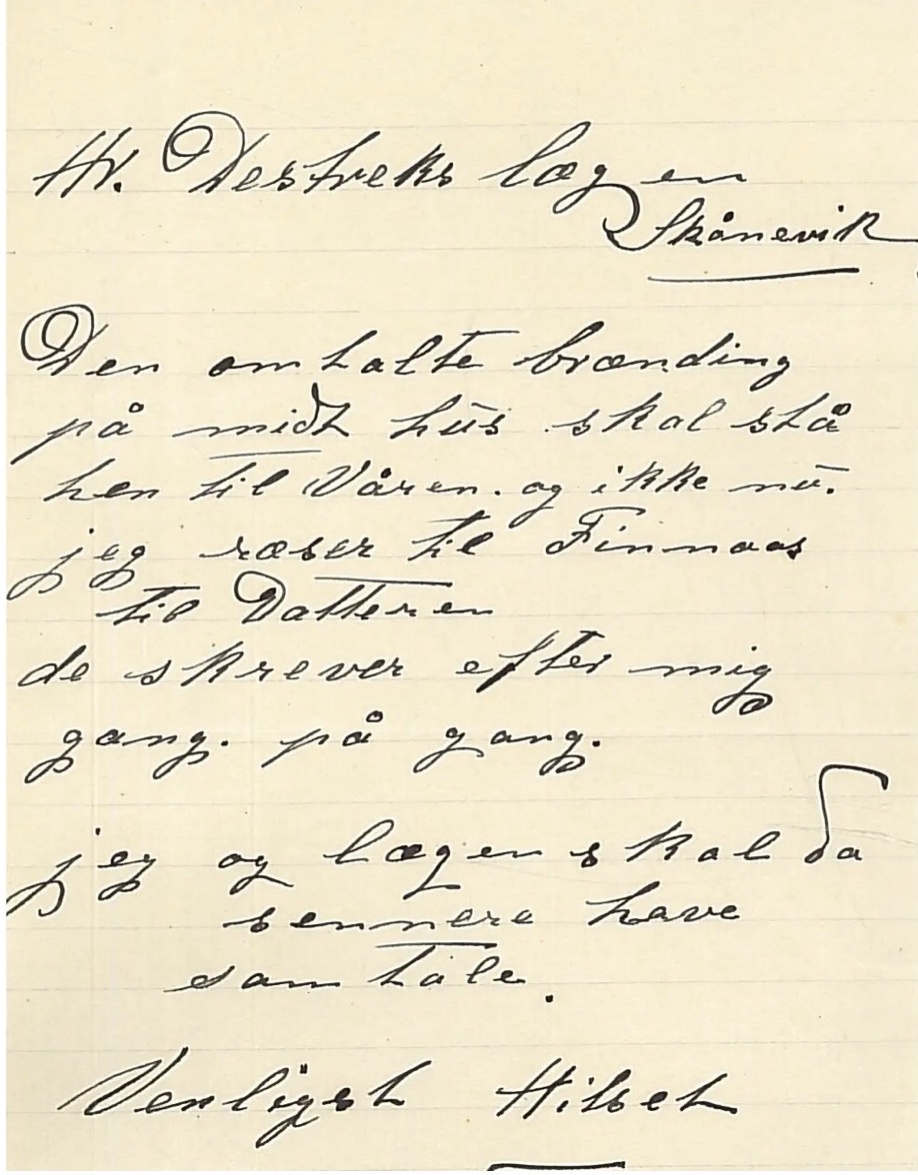 Hr. Destreks lægen
Skånevik
Den omtalte brænding
på midt hus skal stå
hen til Våren. og ikke nu.
jeg ræser til Finnaas
til Datteren
de skrever efter mig
gang. på gang.
jeg og lægen skal da
sennere have
samtale.
Venligst Hilset